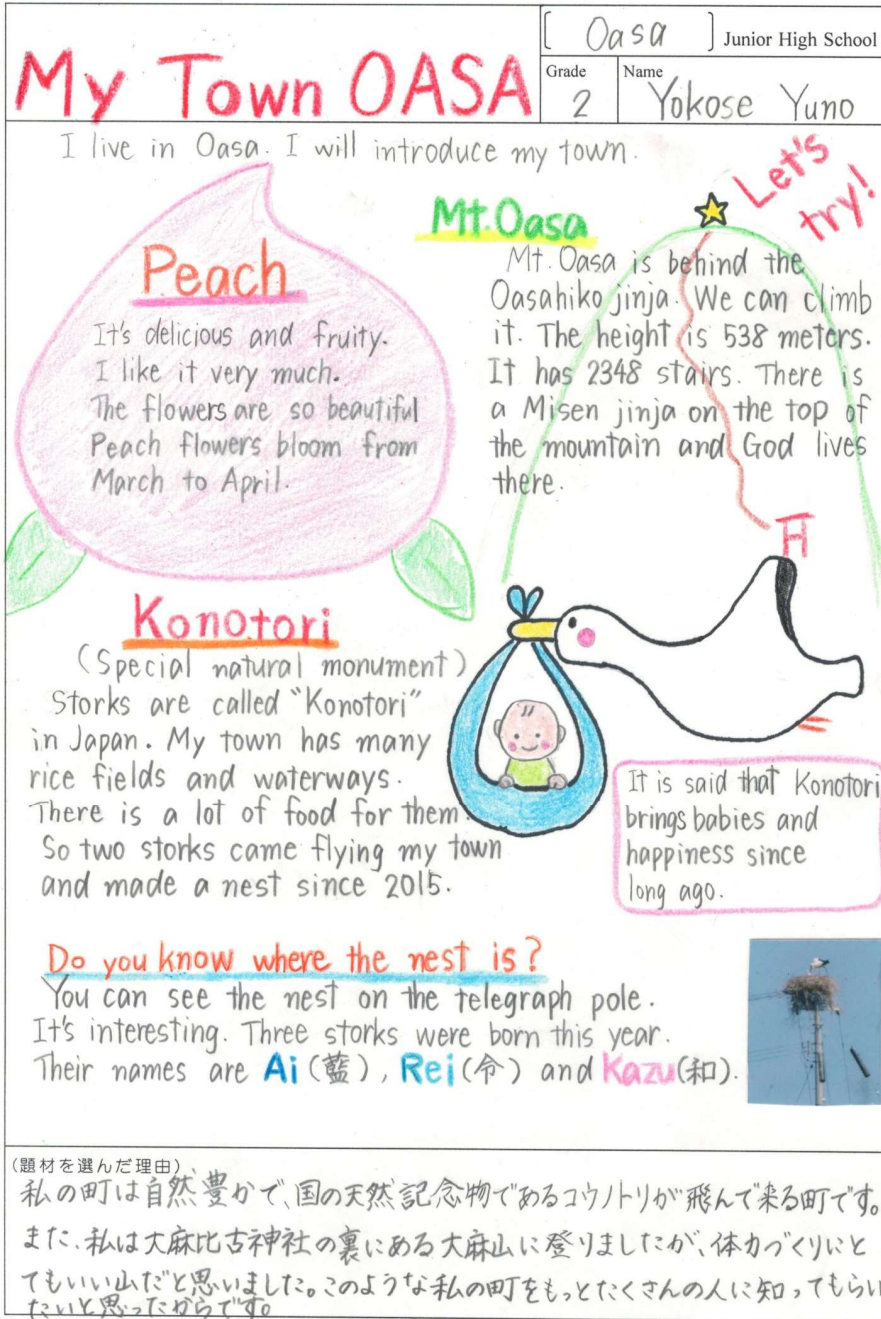 My Town OASA
[ Oasa ] Junior High School
Grade
2
Name
Yokose Yuno
I live in Oasa. I will introduce my town.
Peach
It's delicious and fruity.
I like it very much.
The flowers are so beautiful
Peach flowers bloom from
March to April.
Mt.Oasa
Let's
try!
Mt. Oasa is behind the
Oasahiko jinja. We can climb
it. The height is 538 meters.
It has 2348 stairs. There is
a Misen jinja on the top of
the mountain and God lives
there.
Konotori
(Special natural monument)
Storks are called "Konotori"
in Japan. My town has many
rice fields and waterways.
There is a lot of food for them.
So two storks came flying my town
and made a nest since 2015.
It is said that Konotori
brings babies and
happiness since
long ago.
Do you know where the nest is?
You can see the nest on the telegraph pole.
It's interesting. Three storks were born this year.
Their names are Ai(藍), Rei(令) and Kazu(和).
(題材を選んだ理由)
私の町は自然豊かで、国の天然記念物であるコウノトリが飛んで来る町です。
また、私は大麻比古神社の裏にある大麻山に登りましたが、体力づくりにと
てもいい山だと思いました。このような私の町をもっとたくさんの人に知ってもらい
たいと思ったからです。